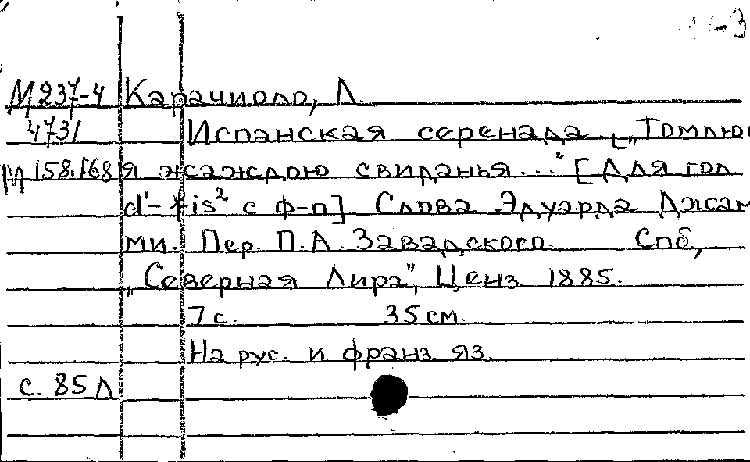 -3
М 237-4 Карачиоло, Л.
4731 Испанская серенада. [„Томлюсь
М 158.168 я жаждою свиданья..." [Для гол.
d¹-fis² с ф-п] Слова Эдуарда Джам-
ми. Пер. П.А. Завадского. Спб,
„Северная Лира", Ценз. 1885.
7 с. 35 см.
На рус. и франз. яз.
с. 85 л